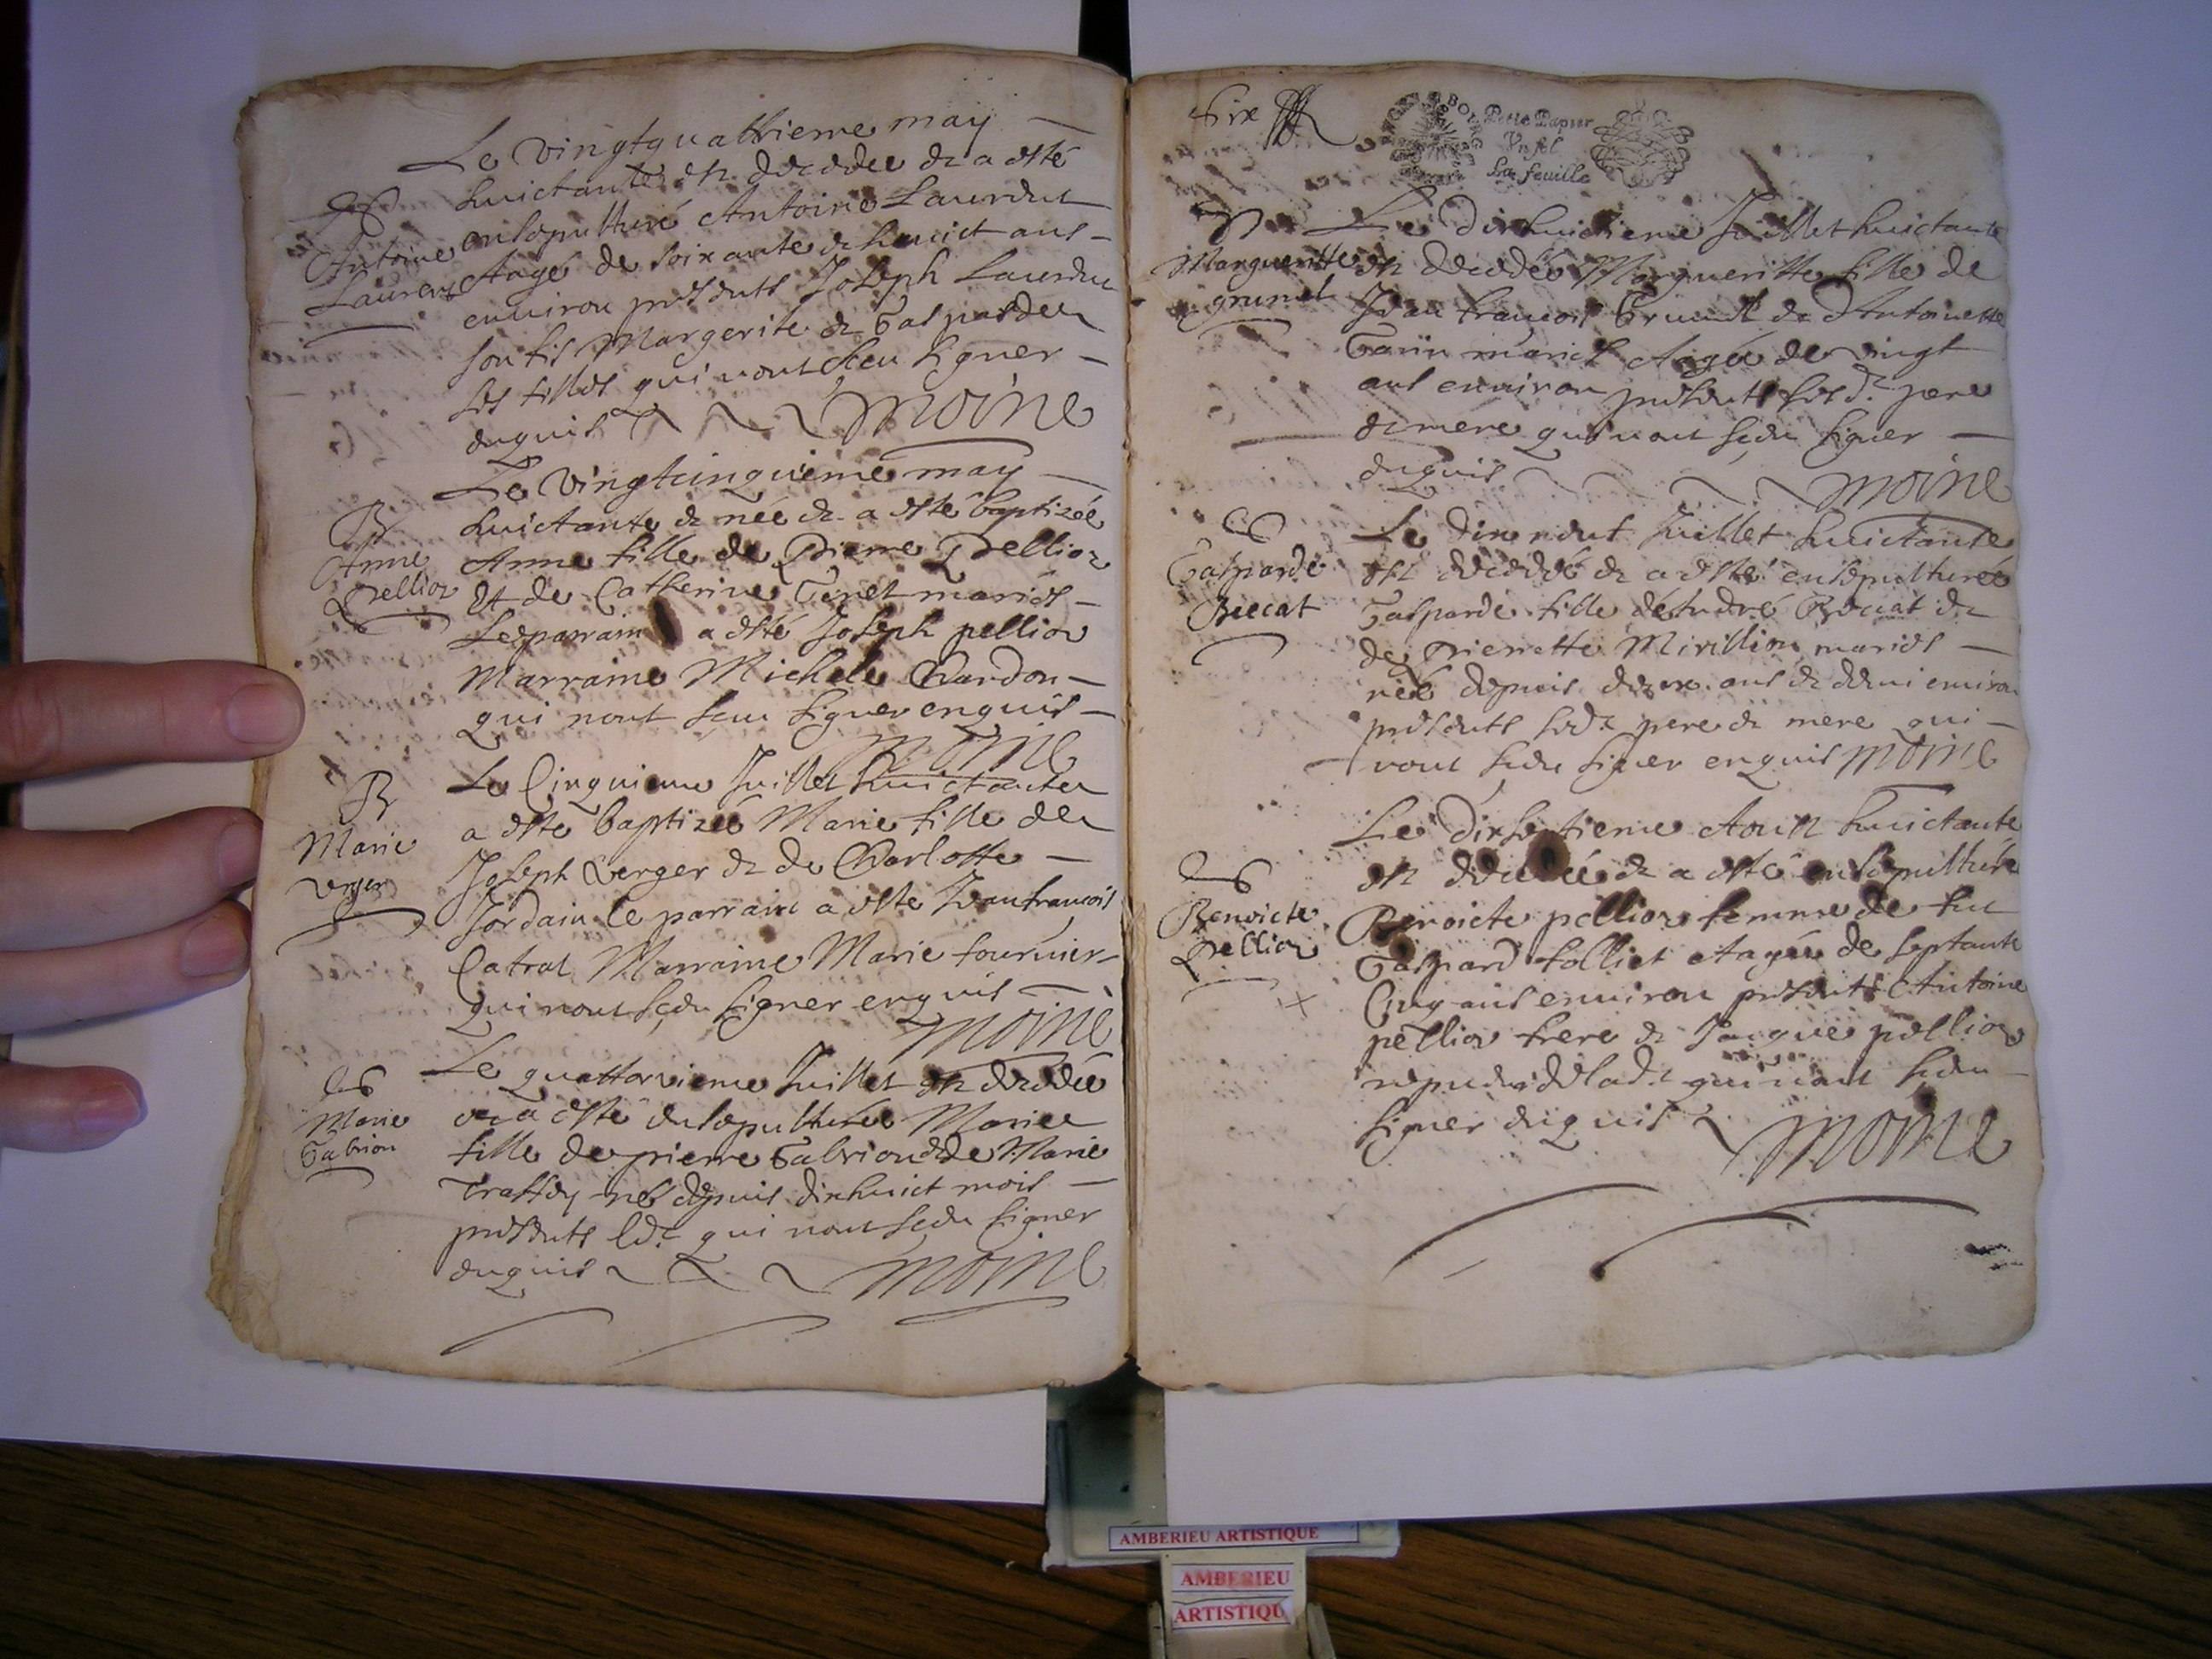 Le vingtquattrieme may
huictante est decedee et a esté
ensepulturé Antoine Laurent
Aagé de soixante et huict ans
environ presents Joseph Laurent
son fils Margerite et Gasparde
ses filles qui nont sceu signer
enquis Moine
Antoine
Laurent
Le vingtcinquieme may
huictante est née et a esté baptizée
Anne fille de Pierre Pellior
Et de Catherine Genet mariés
Le parrain a esté Joseph pellior
Marraine Michele Chardon
qui nont sceu signer enquis
Moine
B
Anne
Pellior
Le Cinquieme Juillet huictante
a esté baptizée Marie fille de
Joseph Verger et de Charlotte
Jordain le parrain a esté Jeanfrancois
Catral Marraine Marie fournier
qui nont sceu signer enquis
Moine
B
Marie
verger
Le quattorzieme Juillet est decedée
et a esté ensepulturée Marie
fille de pierre Gabrion et de Marie
née depuis dixhuict mois
presents led. qui nont sceu signer
enquis Moine
Marie
Gabrion
Six
BOURG
Petit Papier
Un sol
La feuille
Le dixhuictieme Juillet huictante
est decedée Margueritte fille de
Jean francois Grunel et d'Antoinette
mariés Aagée de vingt
ans environ presents sesd. pere
et mere qui nont sceu signer
enquis Moine
Margueritte
grunel
Le dix neuf Juillet huictante
est decedée et a esté ensepulturée
Gasparde fille de André Breucat et
de Pierrette Mirillion mariés
née depuis ans et demi environ
presents sesd. pere et mere qui
nont sceu signer enquis Moine
Gasparde
Le dixseptieme Aoust huictante
est decedée et a esté ensepulturée
Benoicte pellior femme de feu
Gaspard folliet Aagée de septante
Cinq ans environ presents Antoine
pellior frere et Jacque pellior
nepveu de lad. qui nont sceu
signer enquis Moine
Benoicte
Pellior
AMBERIEU ARTISTIQUE
AMBERIEU
ARTISTIQU